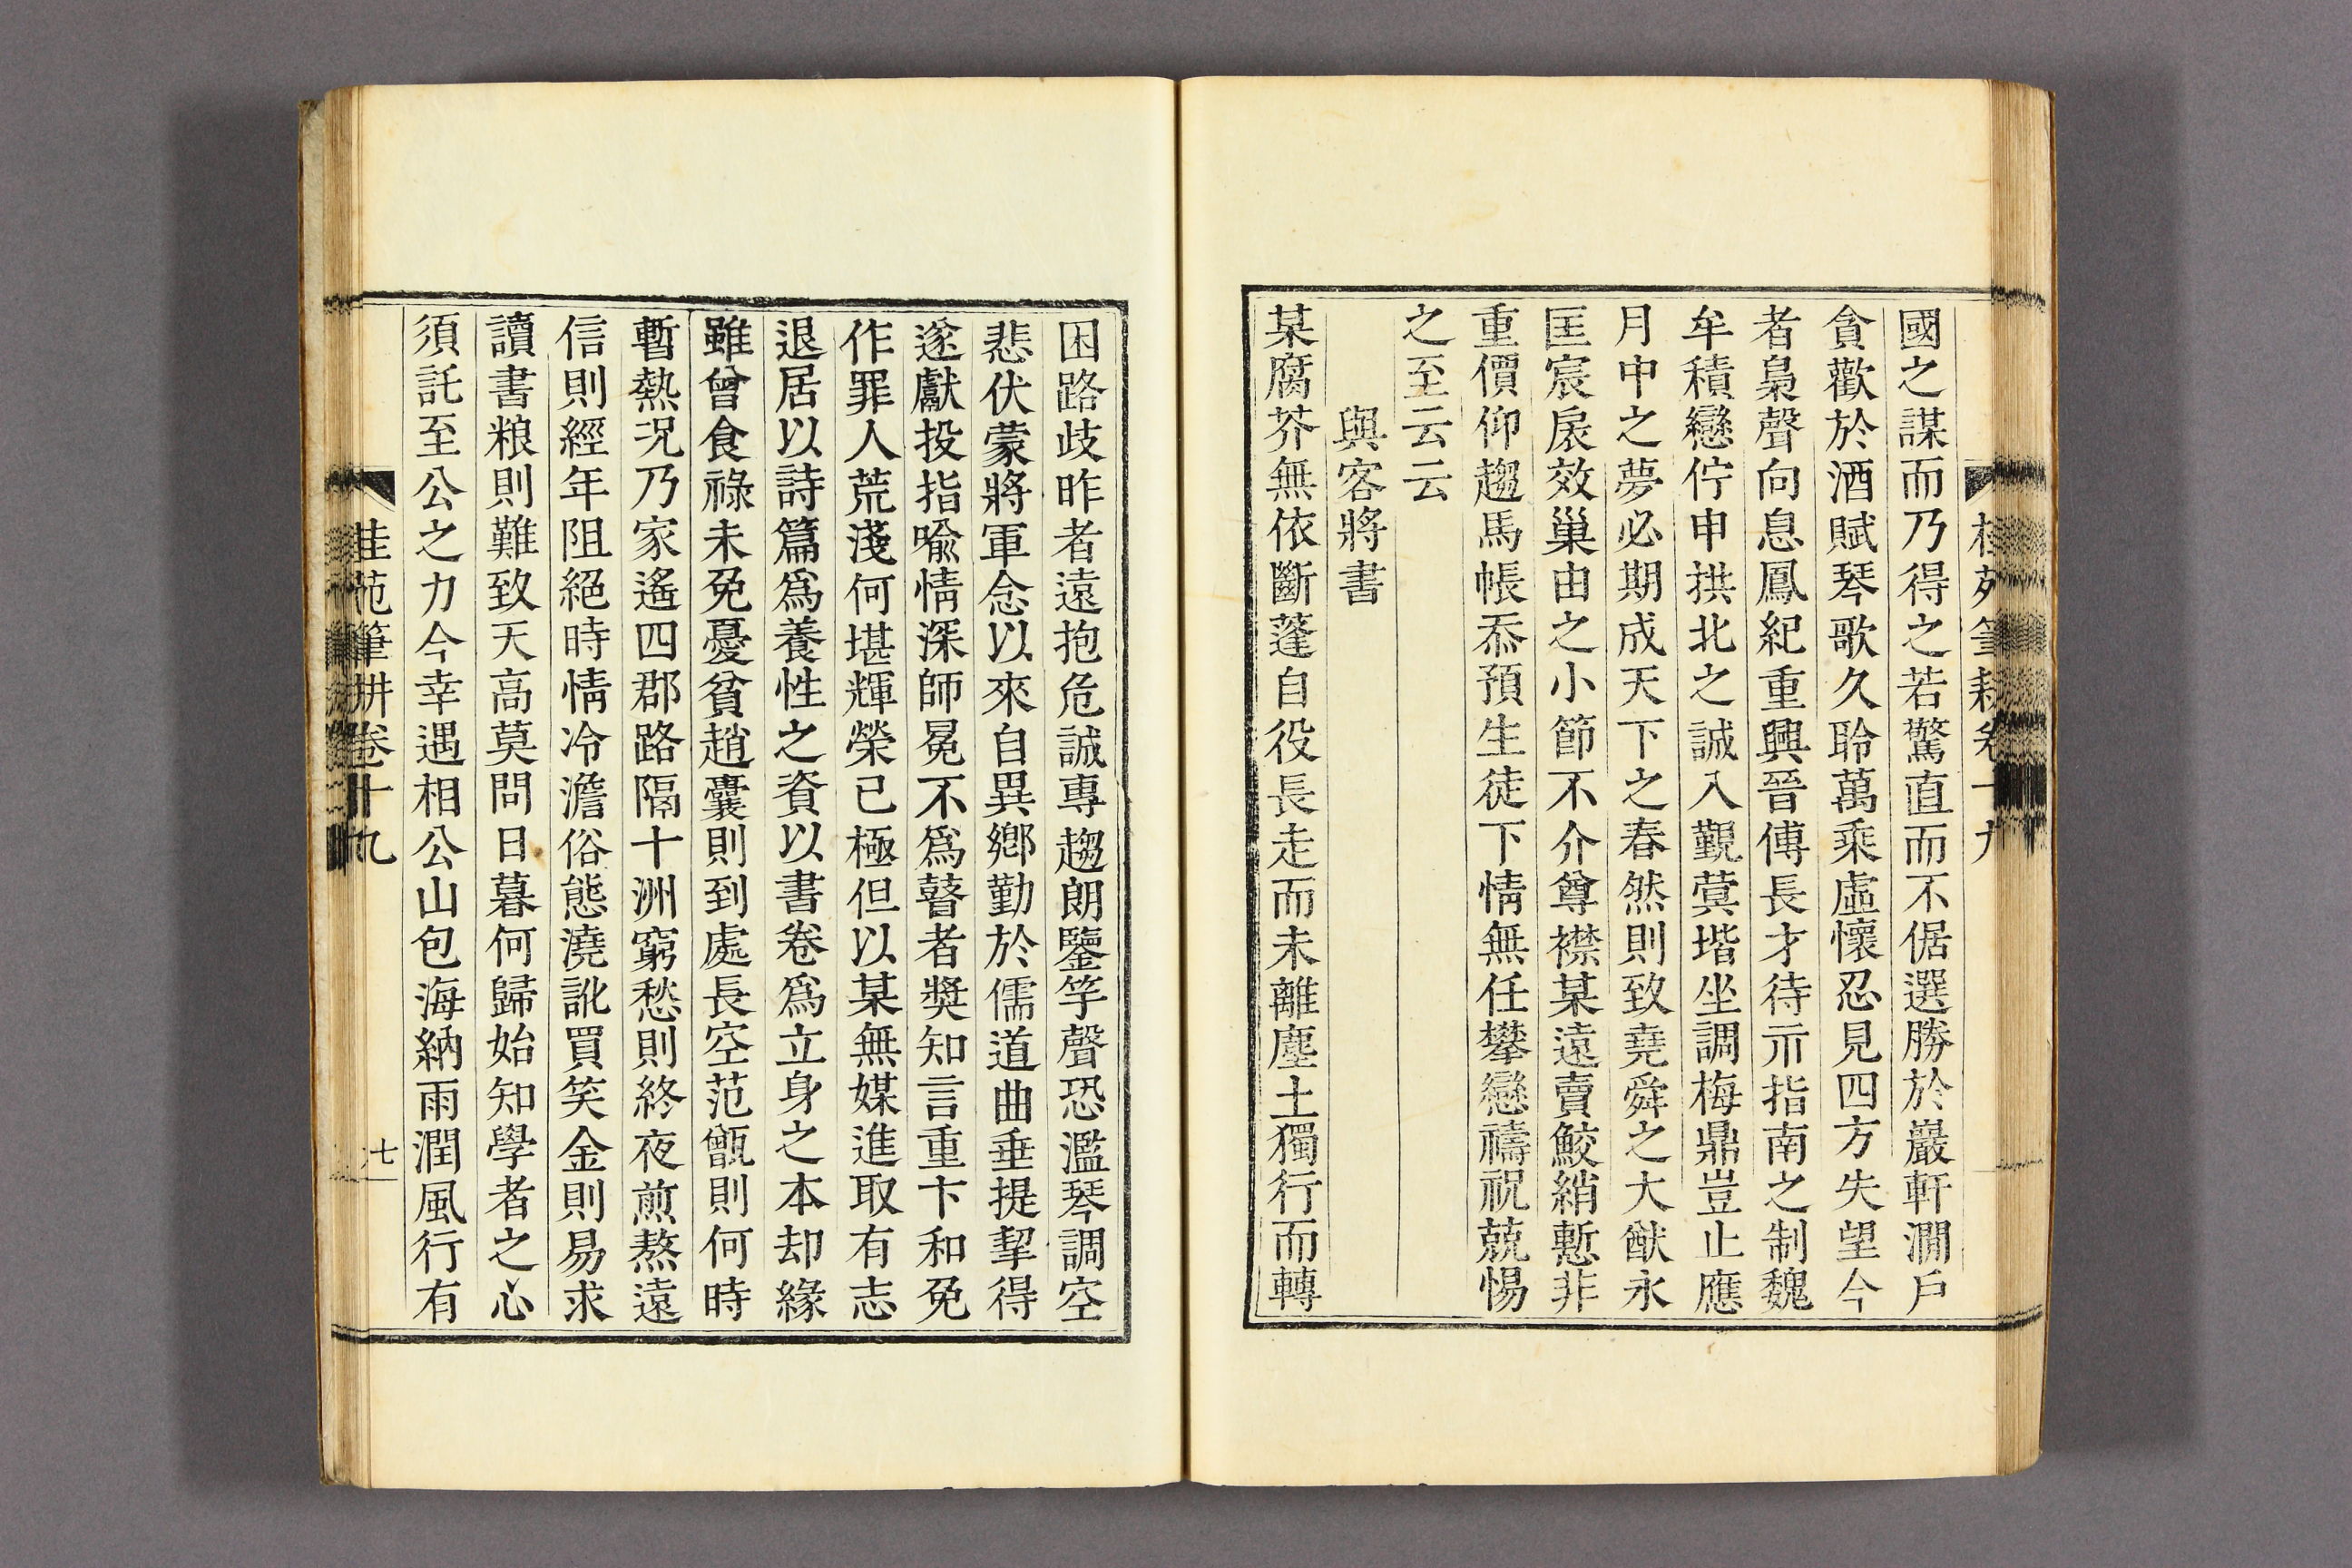 桂苑筆耕卷十九
國之謀而乃得之若驚直而不倨選勝於巖軒澗戶
貪歡於酒賦琴歌久聆萬乘虛懷忍見四方失望今
者梟聲向息鳳紀重興晉傅長才待亓指南之制魏
牟積戀佇申拱北之誠入觀蓂堦坐調梅鼎豈止應
月中之夢必期成天下之春然則致堯舜之大猷永
匡宸扆效巢由之小節不介尊襟某遠賣鮫綃慙非
重價仰趨馬帳忝預生徒下情無任攀戀禱祝兢惕
之至云云
與客將書
某腐芥無依斷蓬自役長走而未離塵土獨行而轉
困路歧昨者遠抱危誠專趨朗鑒竽聲恐濫琴調空
悲伏蒙將軍念以來自異鄉勤於儒道曲垂提挈得
遂獻投指喩情深師冕不爲瞽者奬知言重卞和免
作罪人荒淺何堪輝榮已極但以某無媒進取有志
退居以詩篇爲養性之資以書卷爲立身之本却緣
雖曾食祿未免憂貧趙囊則到處長空范甑則何時
暫熱况乃家遙四郡路隔十洲窮愁則終夜煎熬遠
信則經年阻絕時情冷澹俗態澆訛買笑金則易求
讀書粮則難致天高莫問日暮何歸始知學者之心
須託至公之力今幸遇相公山包海納雨潤風行有
桂苑筆耕卷十九
七